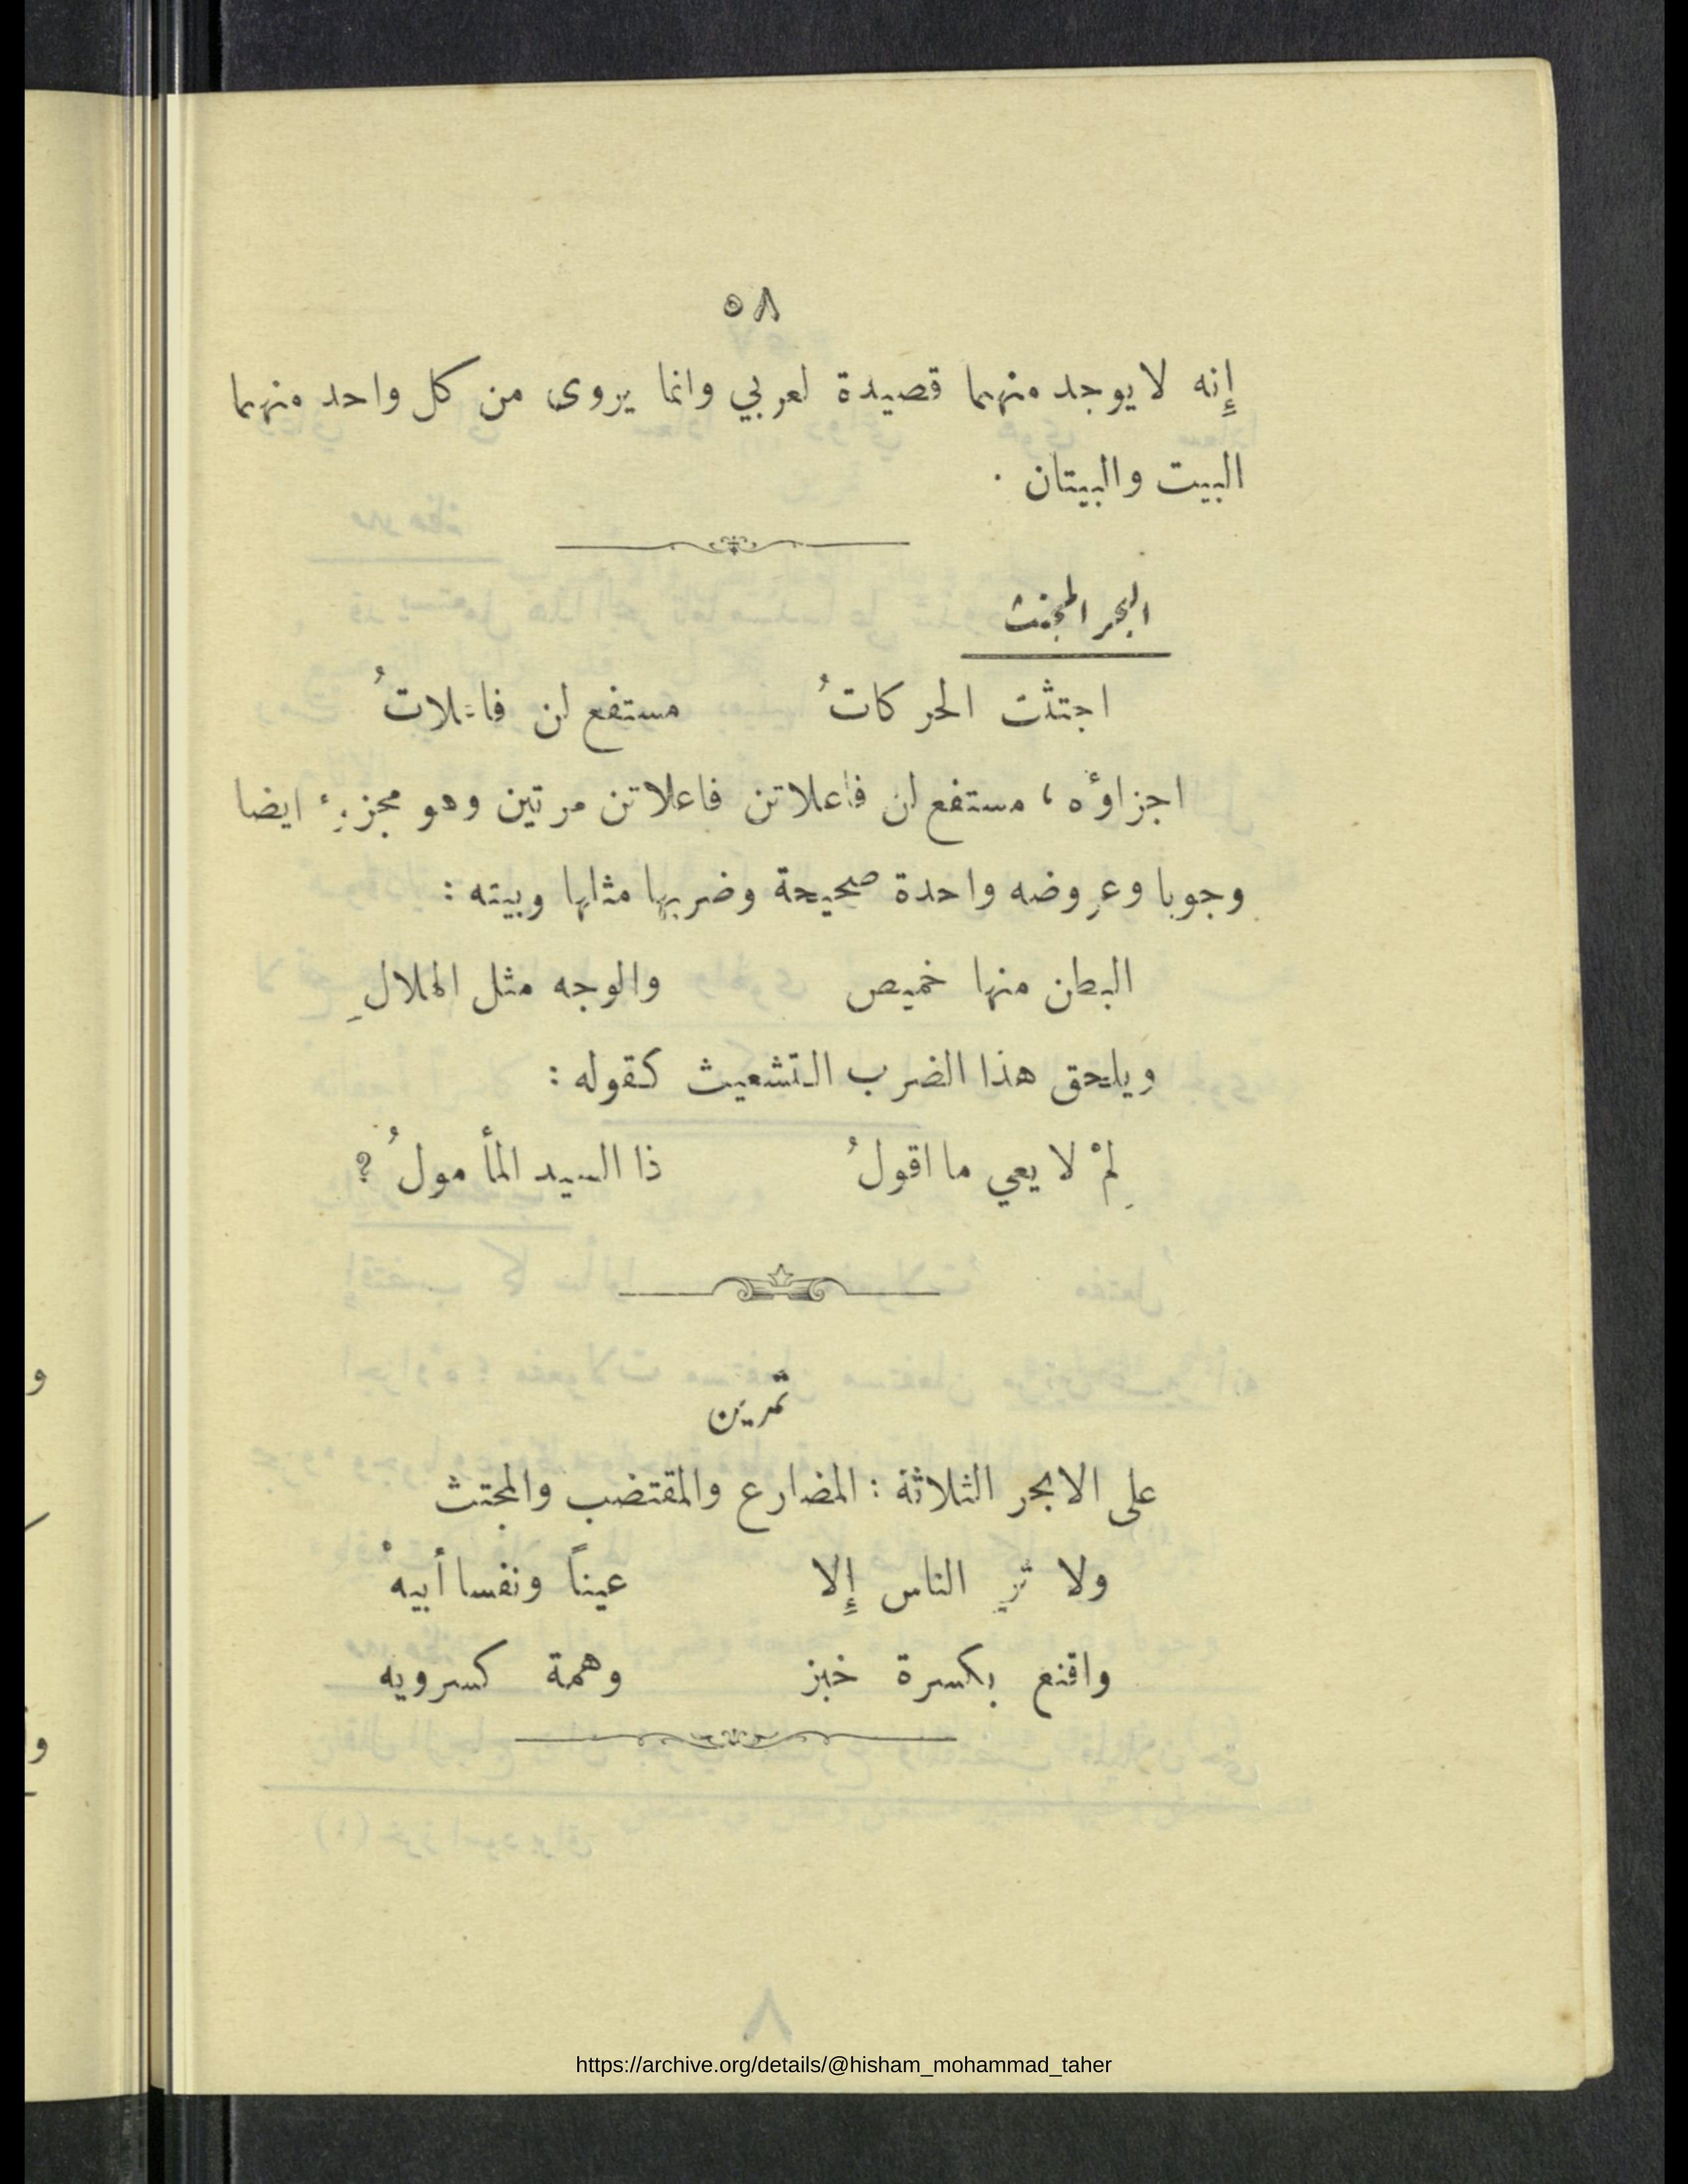 ٥٨
إِنه لا يوجد منهما قصيدة لعربي وانما يروى من كل واحد منهما
البيت والبيتان .
البحر المجتث
اجتثت الحركاتُ مستفع لن فاعلاتُ
اجزاؤه ، مستفع لن فاعلاتن فاعلاتن مرتين وهو مجزوء ايضا
وجوبا وعروضه واحدة صحيحة وضربها مثلها وبيته :
البطن منها خميص والوجه مثل الهلالِ
ويلحق هذا الضرب التشعيث كقوله :
لِمْ لا يعي ما اقولُ ذا السيد المأمولُ ؟
تمرين
على الابحر الثلاثة : المضارع والمقتضب والمجتث
ولا ترِ الناس إِلا عيناً ونفسا أبيهْ
واقنع بكسرة خبز وهمة كسرويه
https://archive.org/details/@hisham_mohammad_taher